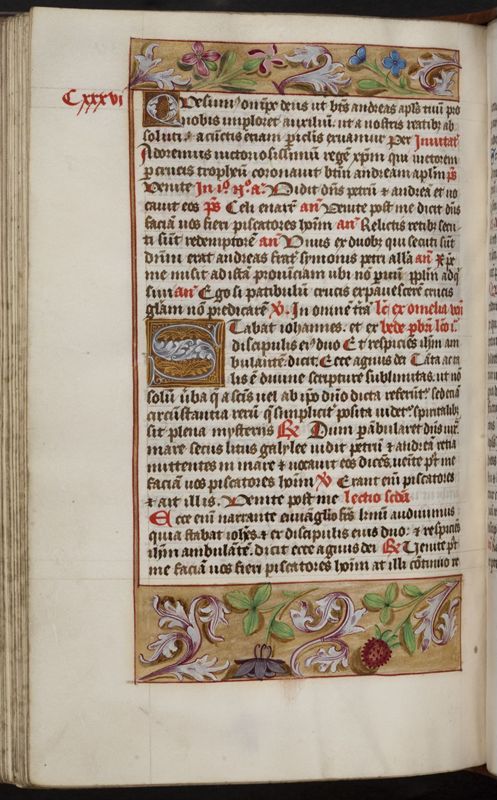 C xxxvi
Quesum⁹ om̄ps deus ut bt̄s andreas apl̄s tuū pro
nobis imploret auxiliū. ut a nostris reatib⁹ ab
soluti. a cūctis etiam piculis eruamur Per Inuitat̄
Adoremus uictoriosissimū regē xp̄m qui uictorem
p crucis tropheū coronauit btm̄ andream aplm̄ p̄s
Venite In i⁰ n⁰ a⁹ Vidit dn̄s petrū & andreā et uo
cauit eos p̄s Celi enarr̄ an̄ Venite post me dicit dn̄s
faciā uos fieri piscatores hoīm an̄ Relictis retib⁹ secu
ti sūt redemptorē an̄ Vnus ex duob⁹ qui secuti sūt
dn̄m erat andreas frat̄ symonis petri all̄a an̄
me misit ad istā prouinciam ubi nō paruū pplm̄ adq̄
siui an̄ Ego si patibulū crucis expauescerē crucis
gl̄am nō predicarē V. In omnē tr̄a lc̄ ex omelia
Stabat iohannes. et ex bede p̄br̄i lc̄o i⁹
discipulis ei⁹ duo Et respiciēs ihm̄ am
bulantē. dicit. Ecce agnus dei Tāta
est diuine scripture sublimitas. ut nō
solū uba q̄ a sc̄tis uel ab ip̄o dn̄o dicta referūt⁹. sed etiā
circūstantia rerū q̄ simplicit⁹ posita uidet⁹ spiritalib⁹
sit plena mysteriis R Dum p̄ābularet dn̄s iux̄
mare secus litus galylee uidit petrū & andreā retia
mittentes in mare & uocauit eos dicēs. ueīte p⁹t me
faciā uos piscatores hoīm V Erant eni piscatores
& ait illis. Venite post me lectio secd̄a
Ecce eni narrante euuāglio fr̄s kmi audiuimus
quia stabat ioh̄es & ex discipulis eius duo. & respiciēs
ihm̄ ambulātē. dicit ecce agnus dei R Venite p⁹t
me faciā uos fieri piscatores hoīm at illi cōtinuo re